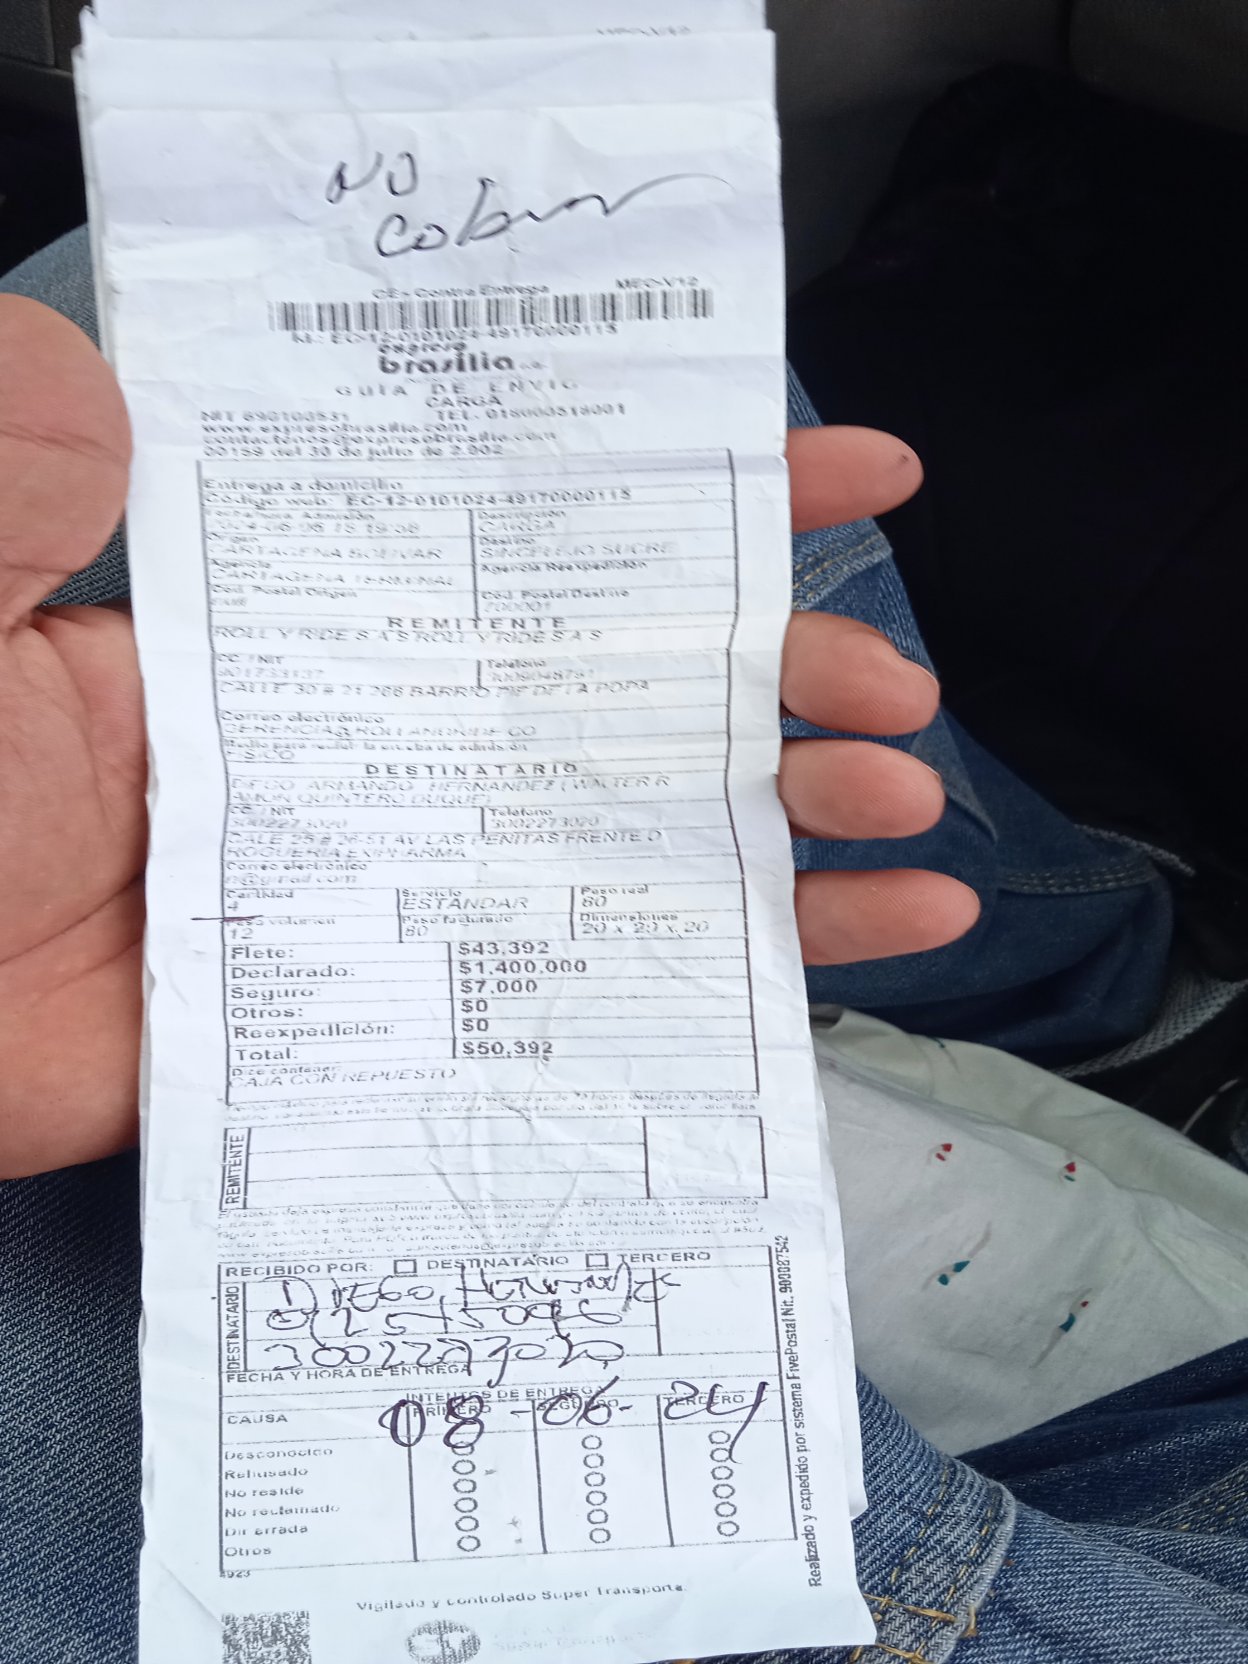 NO
Cobrar
CE: Contra Entrega MEC-V12
EC-12-0101024-49170000115
expreso
brasilia
GUIA DE ENVIO
CARGA
NIT 890100531 TEL. 018000518001
www.expresobrasilia.com
contactenos@expresobrasilia.com
00159 del 30 de julio de 2.002
Entrega a domicilio
Código web: EC-12-0101024-49170000115
Descripción
CARGA
Origen Destino
CARTAGENA BOLIVAR SINCELEJO SUCRE
Agencia Agencia Reexpedición
CARTAGENA TERMINAL
Cód. Postal Origen Cód. Postal Destino
700001
REMITENTE
ROLL Y RIDE S A S ROLL Y RIDE S A S
CC / NIT Teléfono
CALLE 30 # 21 266 BARRIO PIE DE LA POPA
Correo electrónico
DESTINATARIO
ARMANDO HERNANDEZ (WALTER R
AMON QUINTERO DUQUE)
CC / NIT Teléfono
3002273020 3002273020
CALE 25 # 26-51 AV LAS PENITAS FRENTE D
ROGUERIA EXPHARMA
Correo electrónico
Cantidad Servicio Peso real
4 ESTANDAR 80
Peso volumen Peso facturado Dimensiones
12 80 20 x 20 x 20
Flete: $43,392
Declarado: $1,400,000
Seguro: $7,000
Otros: $0
Reexpedición: $0
Total: $50,392
Dice contener:
CAJA CON REPUESTO
REMITENTE
RECIBIDO POR: DESTINATARIO TERCERO
DESTINATARIO
DIEGO Hernandez
3002273020
FECHA Y HORA DE ENTREGA
INTENTOS DE ENTREGA
CAUSA PRIMERO SEGUNDO TERCERO
08-06-24
Desconocido
Rehusado
No reside
No reclamado
Dir errada
Otros
4923
Vigilado y controlado Super Transporte.
Realizado y expedido por sistema FivePostal Nit. 900087542